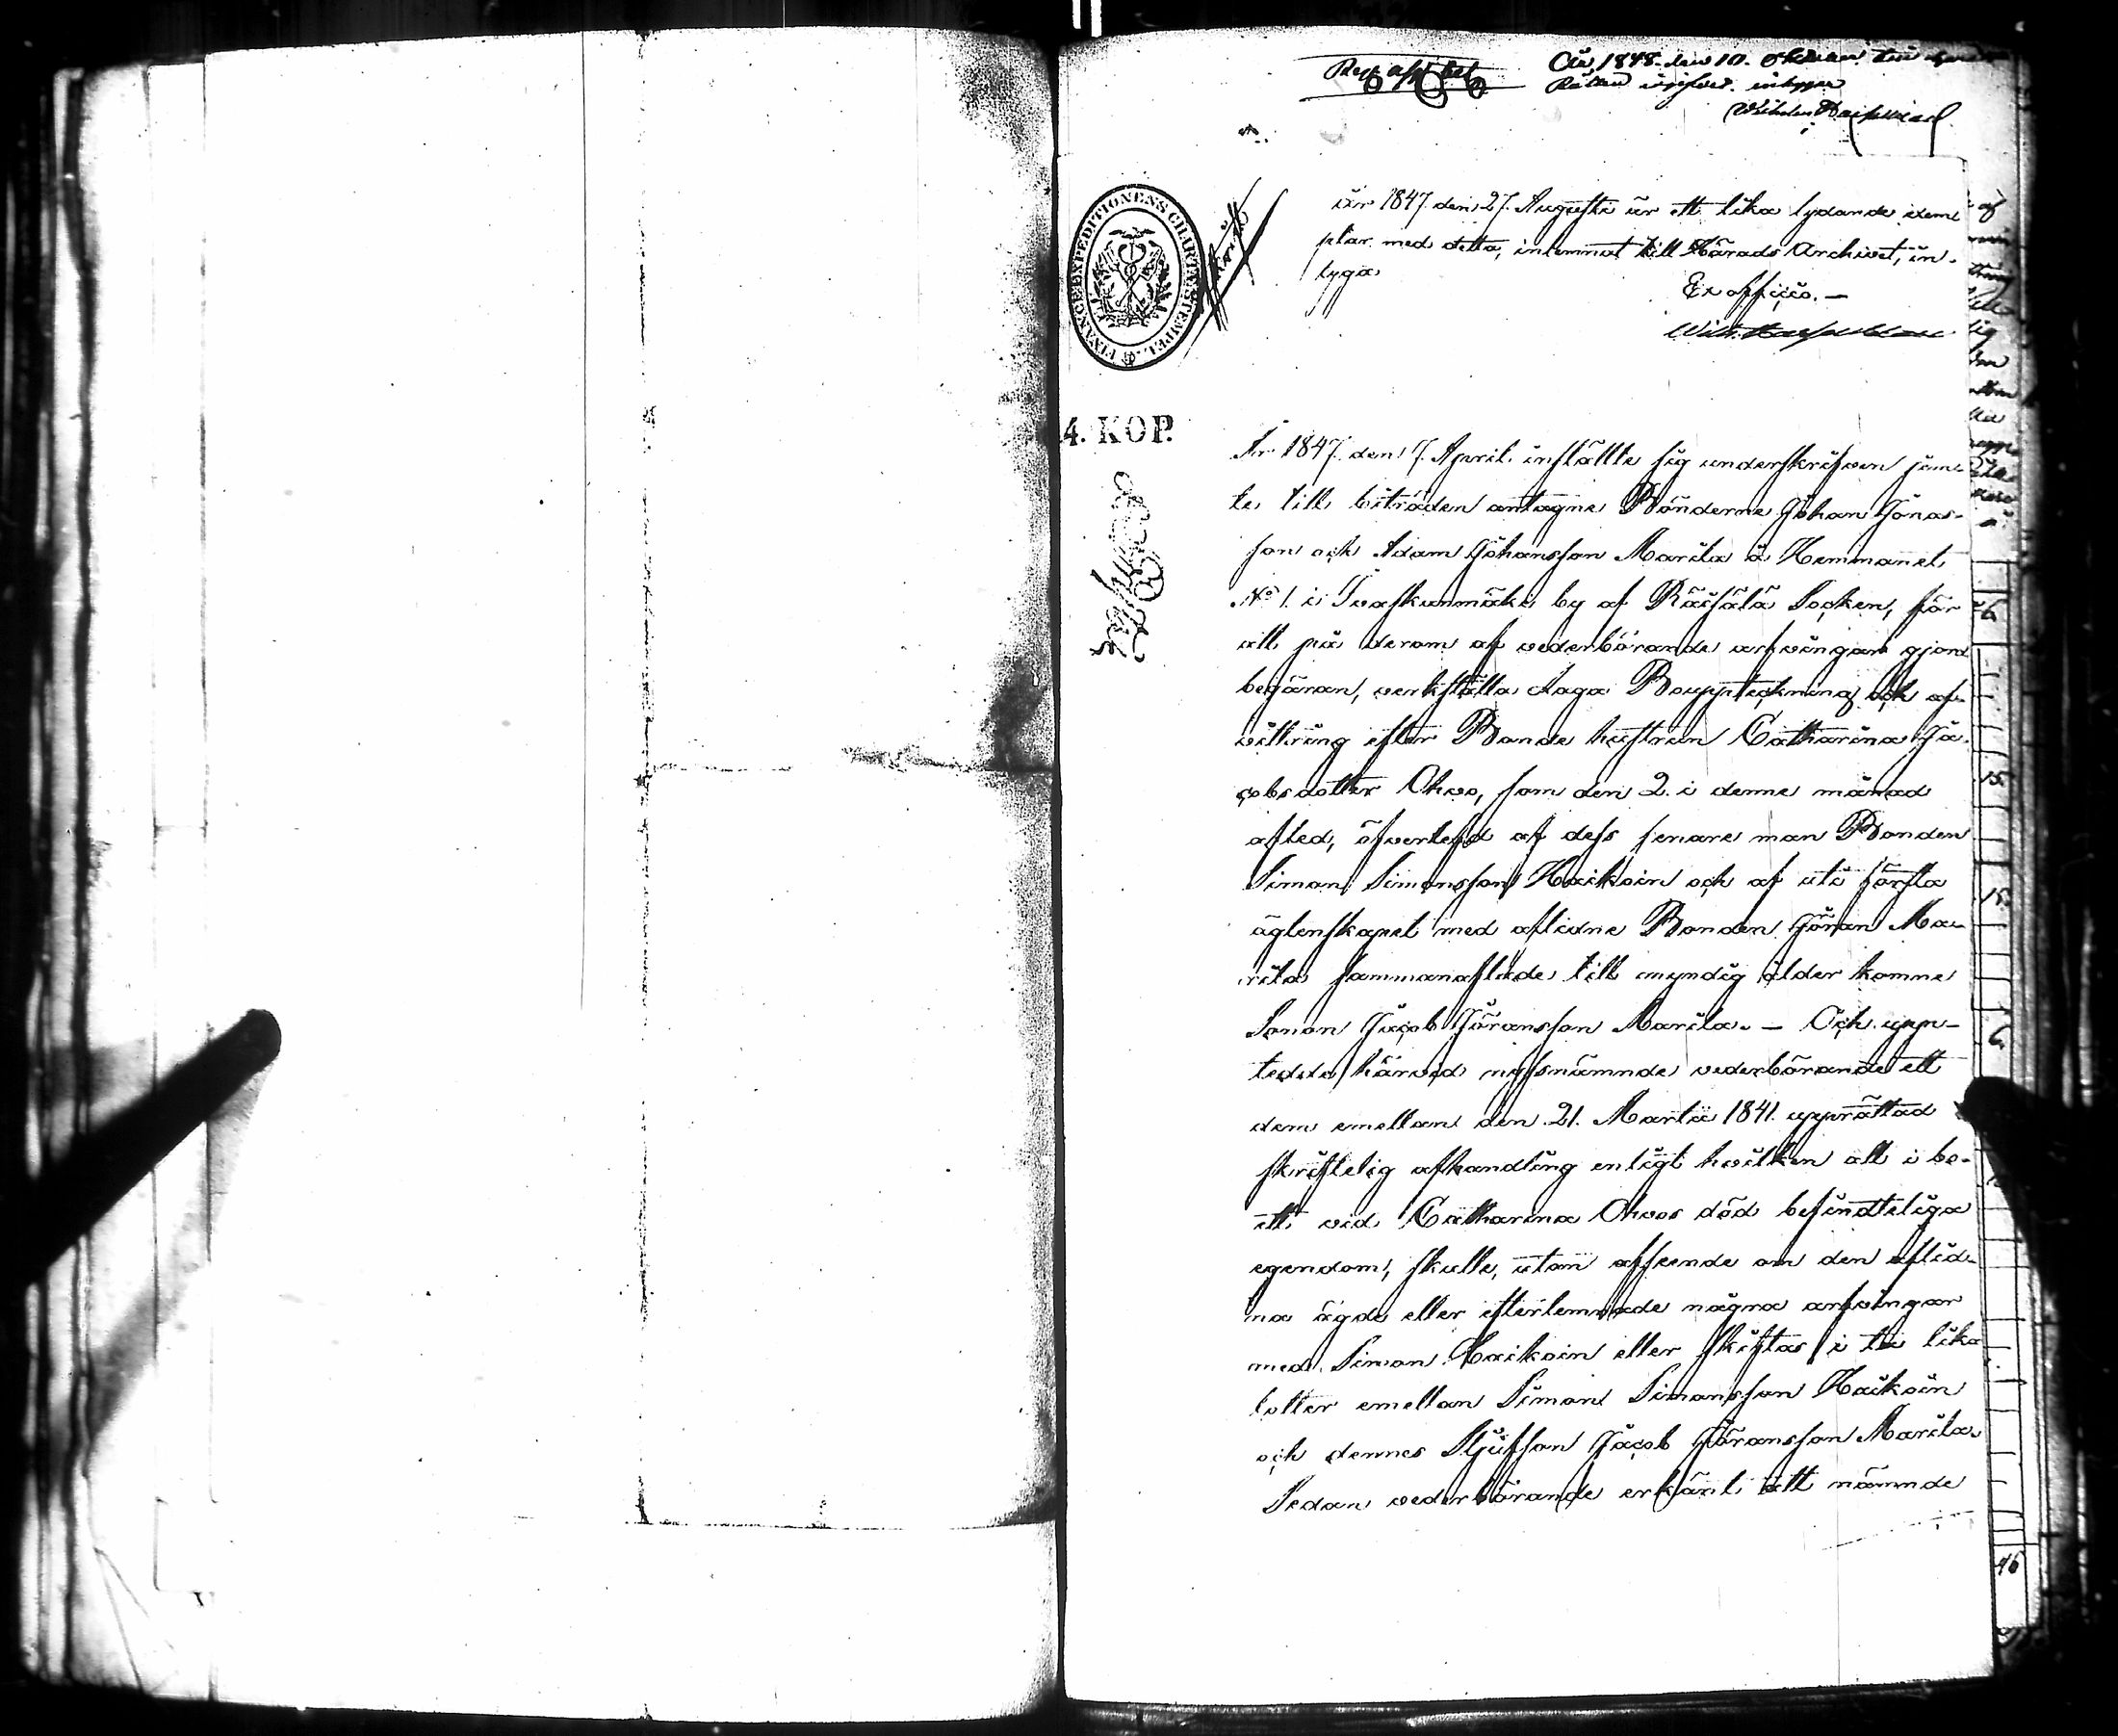 År 1848. den 10. Oktober
Rätten ingifvet. intygar
Wilhelm
FINANCE EXPEDITIONENS CHARTÆ STEMPEL.
år 1847 den 27. Augusti är ett lika lydande exem-
plar med detta, inlemnat till Härads Archivet, in-
tygar
Ex officio. —
4. KOP.
År 1847. den 7. April. inställte sig underskrifven jem-
te till biträden antagne Bönderne Johan Jönas-
son och Adam Johansson Marila å Hemmanet
No 1. i by af Räisälä Socken, för
att på derom af vederbörande arfvingar gjord
begäran, verkställa Laga Bouppteckning och af-
vittring efter Bonde hustrun Catharina Ja-
cobsdotter Ohvo, som den 2. i denne månad
afled, öfverlefd af dess senare man Bonden
Simon Simonsson Haikoin och af uti första
äktenskapet med aflidne Bonden Göran Ma-
rila sammanaflade till myndig ålder komne
Sonen Jacob Göransson Marila. — Och upp-
tedde härvid nyssnämnde vederbörande ett
dem emellan den 21. Martii 1841. upprättad
skriftelig afhandling enligt hvilken allt i bo-
et vid Catharina Ohvos död befindteliga
egendom, skulle, utan afseende om den aflid-
na ägde eller efterlemnade några arfvingar
med Simon Haikoin eller skiftas i två lika
lotter emellan Simon Simonsson Haikoin
och dennes Stjufson Jacob Göransson Marila.
Sedan vederbörande erkänt att nämnde
6
15.
18.
6
46